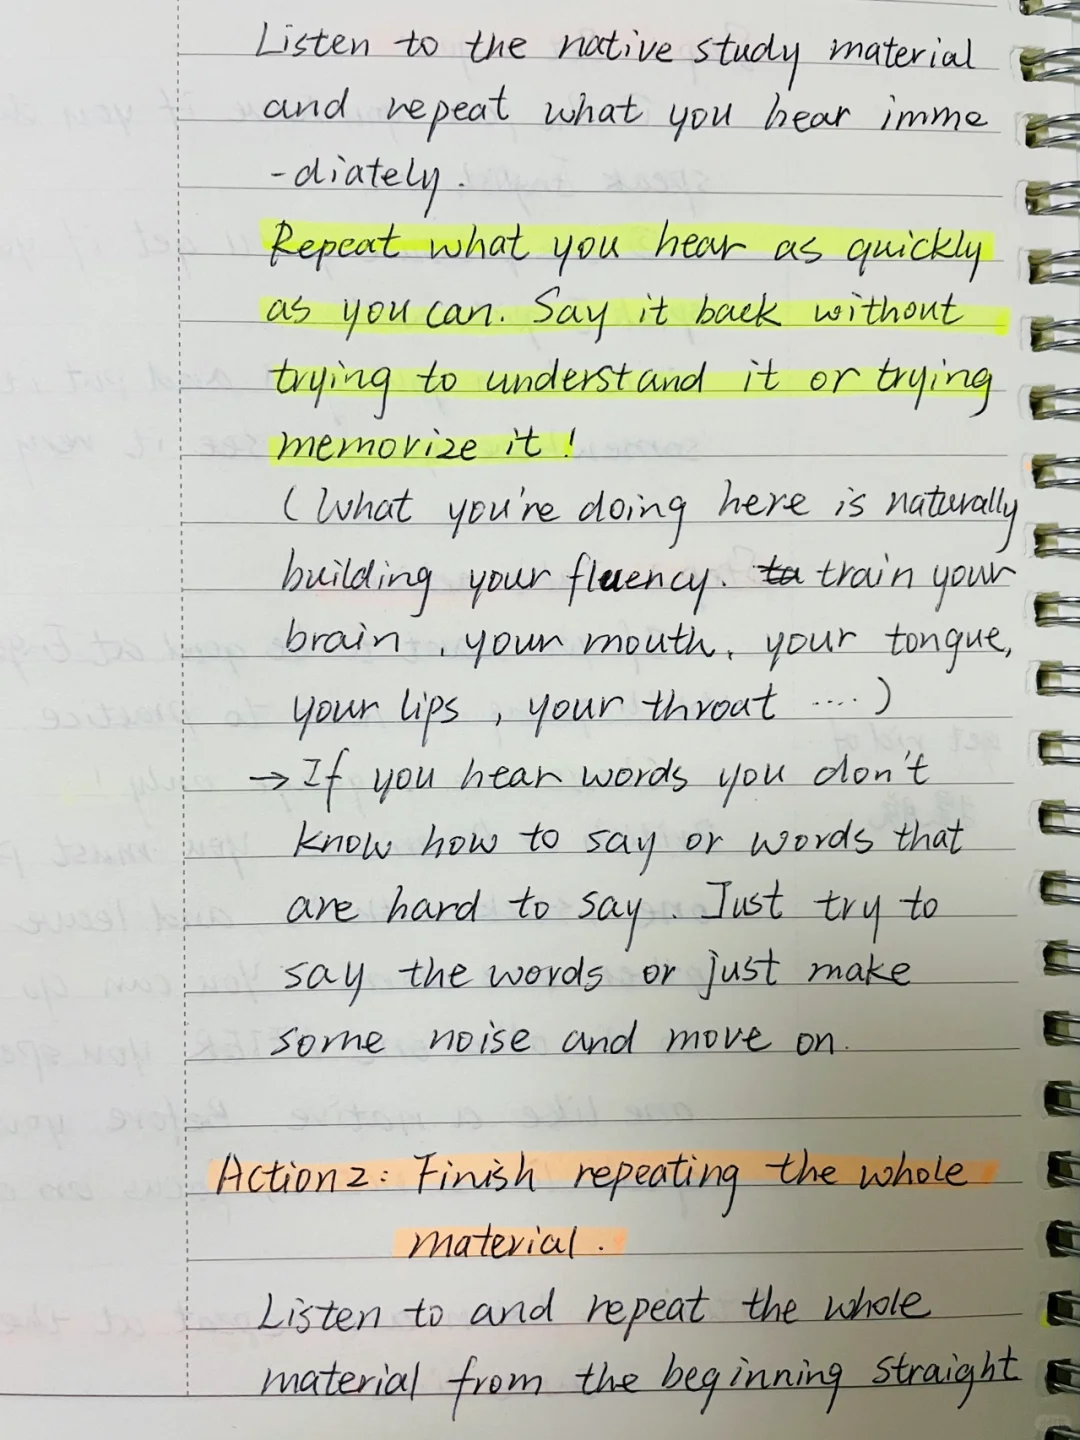 Listen to the native study material
and repeat what you hear imme
-diately.
Repeat what you hear as quickly
as you can. Say it back without
trying to understand it or trying
memorize it!
(What you're doing here is naturally
building your fluency. ta train your
brain, your mouth, your tongue,
your lips, your throat ....)
→ If you hear words you don't
know how to say or words that
are hard to say. Just try to
say the words or just make
some noise and move on.
Action2: Finish repeating the whole
material.
Listen to and repeat the whole
material from the beginning straight